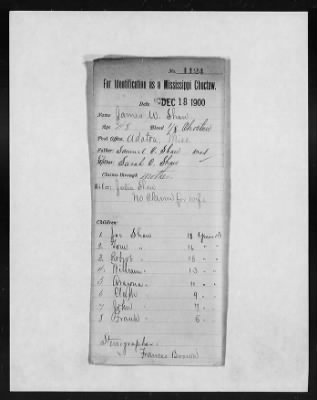 No. 1124
For Identification as a Mississippi Choctaw.
Date DEC 18 1900
Name James W. Shaw
Age 48 Blood 1/8 Choctaw
Post Office, Adaton, Miss
Father: Samuel V. Shaw
Mother: Sarah C. Shaw
Claims through mother
Wife: Julia Shaw
No Claim for wife
Children:
1 Jas Shaw 18 years old
2 Tom " 16 "
3 Robert " 15 "
4 William " 13 "
5 11 "
6 9 "
7 John " 7 "
8 Frank " 5 "
Stenographer
Frances Brown